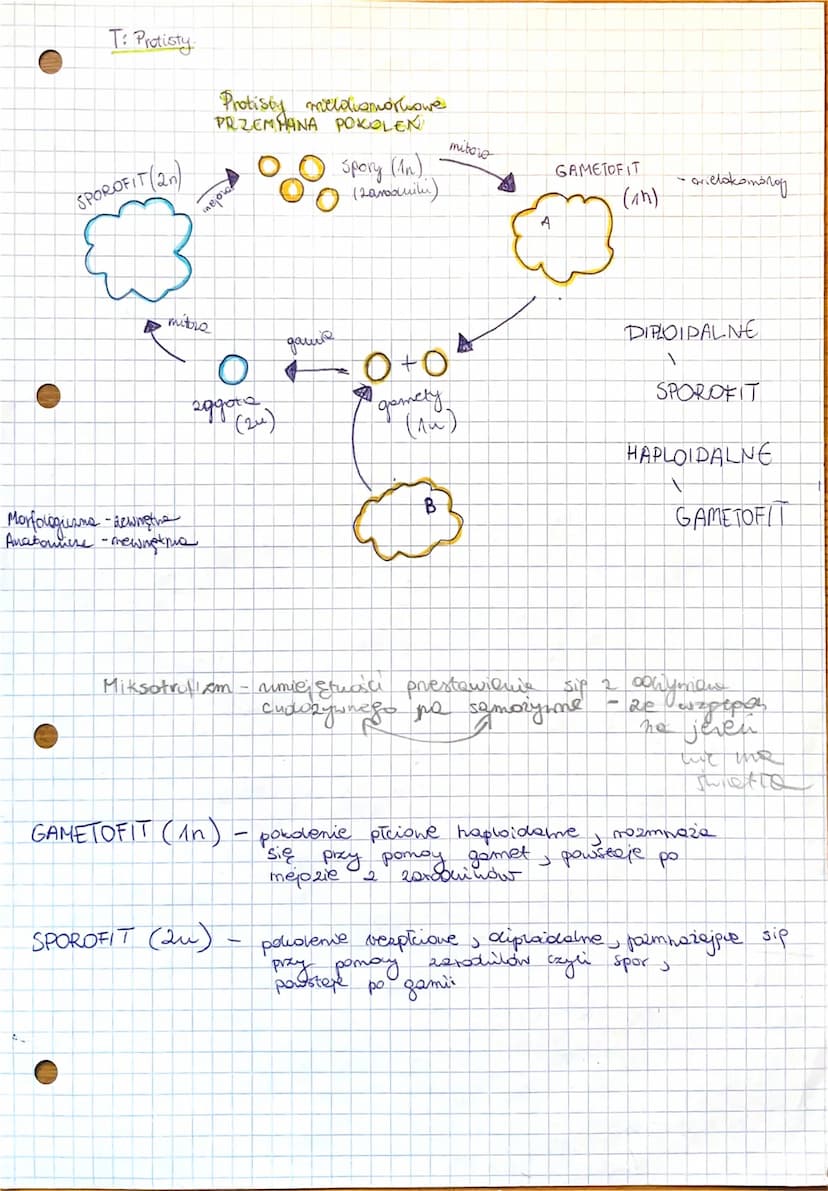 T: Protisty.
Protisty wielokomórkowe
PRZEMIANA POKOLEŃ
SPOROFIT (2n)
mejoza
spory (1n)
(zarodniki)
mitoza
GAMETOFIT
(1n)
- wielokomórkowy
A
mitoza
gamia
+
zygota
(2n)
gamety
(1n)
B
DIPLOIDALNE
\
SPOROFIT
HAPLOIDALNE
\
GAMETOFIT
Morfologiczna - zewnętrzna
Anatomiczna - wewnętrzna
Miksotrofizm - umiejętności przestawiania się z odżywiania
cudzożywnego na samożywne - ze względu
na jeżeli
nie ma
światła
GAMETOFIT (1n) - pokolenie płciowe haploidalne, rozmnaża
się przy pomocy gamet, powstaje po
mejozie z zarodników
SPOROFIT (2n) - pokolenie bezpłciowe, diploidalne, rozmnażające się
przy pomocy zarodników czyli spor,
powstaje po gamii